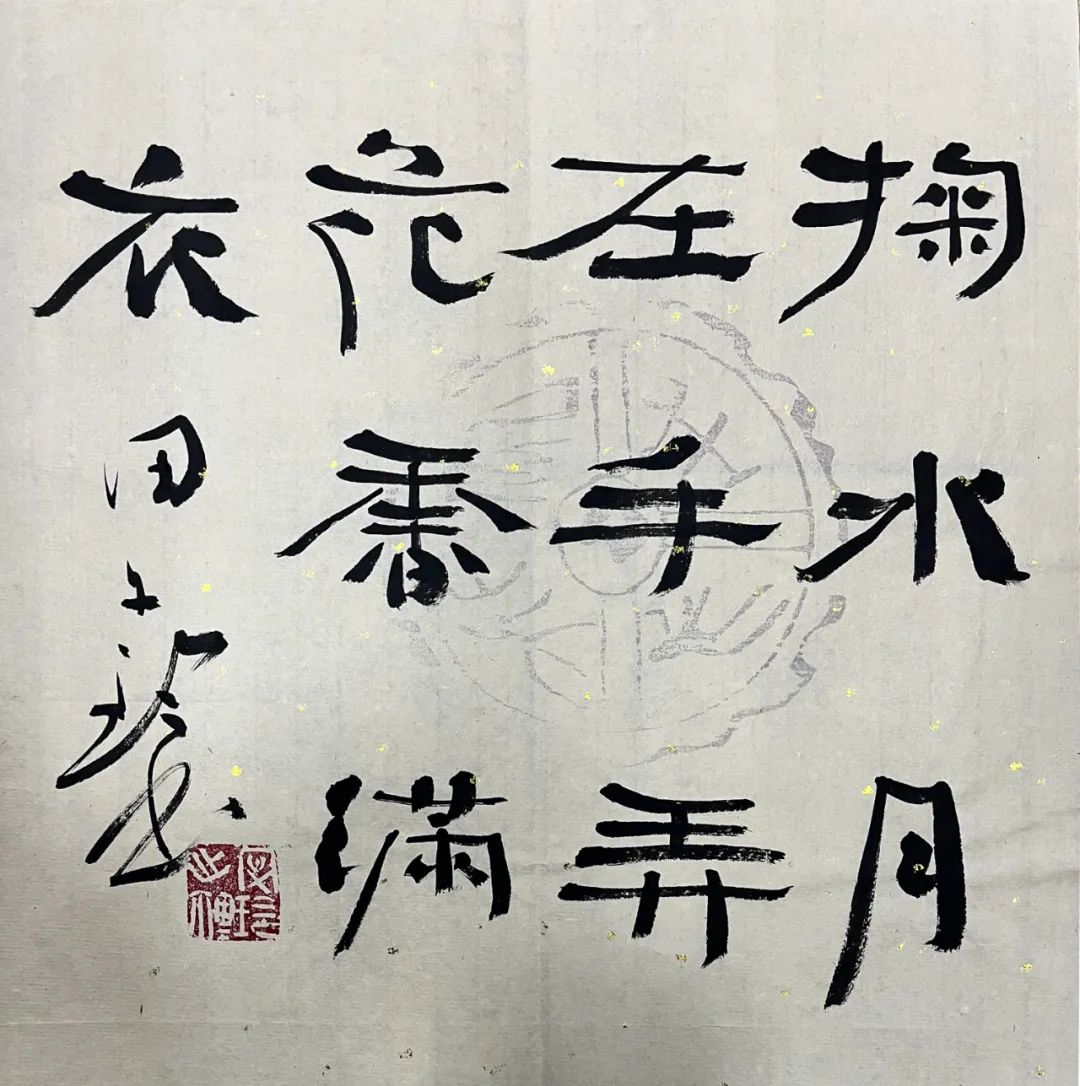 掬水月
在手弄
花香满
衣 田